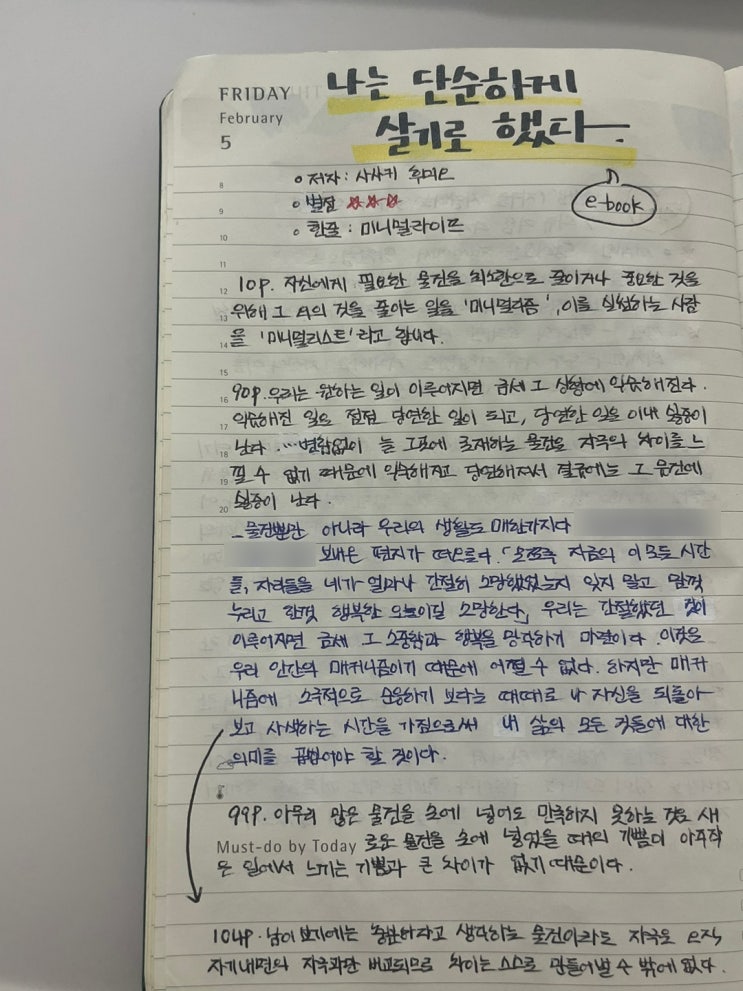 FRIDAY
February
5
나는 단순하게
살기로 했다.
e-book
o 저자 : 사사키 후미오
o 별점 ☆☆☆
o 한줄 : 미니멀라이프
8
9
10
11
12
13
14
15
16
17
18
19
20
10p. 자신에게 필요한 물건을 최소한으로 줄이거나 중요한 것을
위해 그 외의 것을 줄이는 일을 '미니멀리즘', 이를 실천하는 사람
을 '미니멀리스트'라고 합니다.
90p. 우리는 원하는 일이 이루어지면 금세 그 상황에 익숙해진다.
익숙해진 일은 점점 당연한 일이 되고, 당연한 일은 이내 싫증이
난다. …변함없이 늘 그곳에 존재하는 물건은 자극의 차이를 느
낄 수 없기 때문에 익숙해지고 당연해져서 결국에는 그 물건에
싫증이 난다.
_물건뿐만 아니라 우리의 생활도 매한가지다
보내온 편지가 떠오른다. 「오로지 지금의 이 모든 시간
들, 자리들을 네가 얼마나 간절히 소망했었는지 잊지 말고 맘껏
누리고 한껏 행복한 오늘이길 소망한다」 우리는 간절했던 것이
이루어지면 금세 그 소중함과 행복을 망각하기 마련이다. 이것은
우리 인간의 매커니즘이기 때문에 어쩔 수 없다. 하지만 매커
니즘에 소극적으로 순응하기 보다는 때때로 나 자신을 되돌아
보고 사색하는 시간을 가짐으로써 내 삶의 모든 것들에 대한
의미를 곱씹어야 할 것이다.
99p. 아무리 많은 물건을 손에 넣어도 만족하지 못하는 것은 새
Must-do by Today 로운 물건을 손에 넣었을 때의 기쁨이 아주작
은 일에서 느끼는 기쁨과 큰 차이가 없기 때문이다.
104p. 남이 보기에는 충분하다고 생각하는 물건이라도 자극은 오직
자기내면의 자극과만 비교되므로 차이는 스스로 만들어낼 수 밖에 없다.